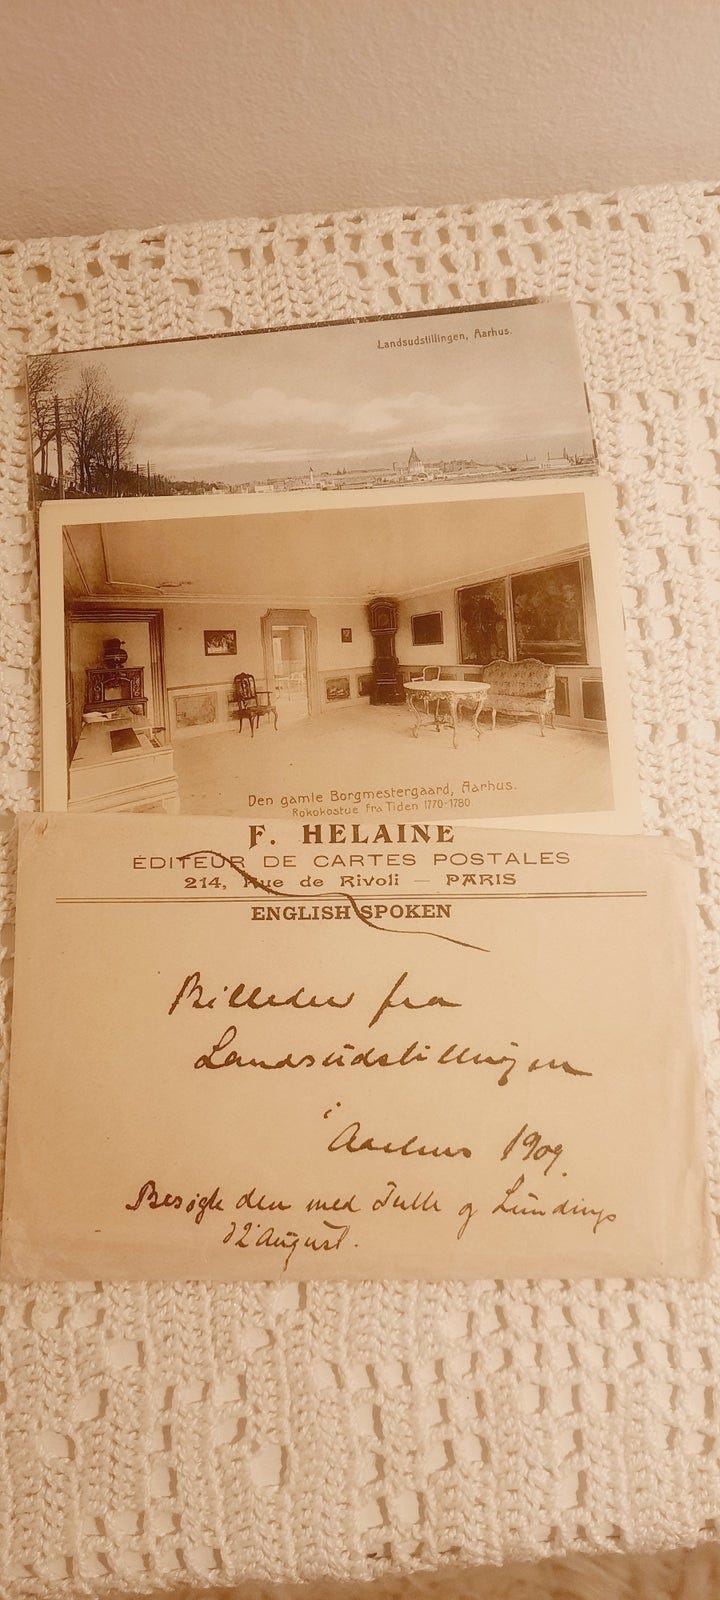 Landsudstillingen, Aarhus.
Den gamle Borgmestergaard, Aarhus.
Rokokostue fra Tiden 1770-1780
F. HELAINE
ÉDITEUR DE CARTES POSTALES
214, Rue de Rivoli — PARIS
ENGLISH SPOKEN
Billeder fra
Landsudstillingen
i
Aarhus 1909.
Besøgte den med og Lundings
August.